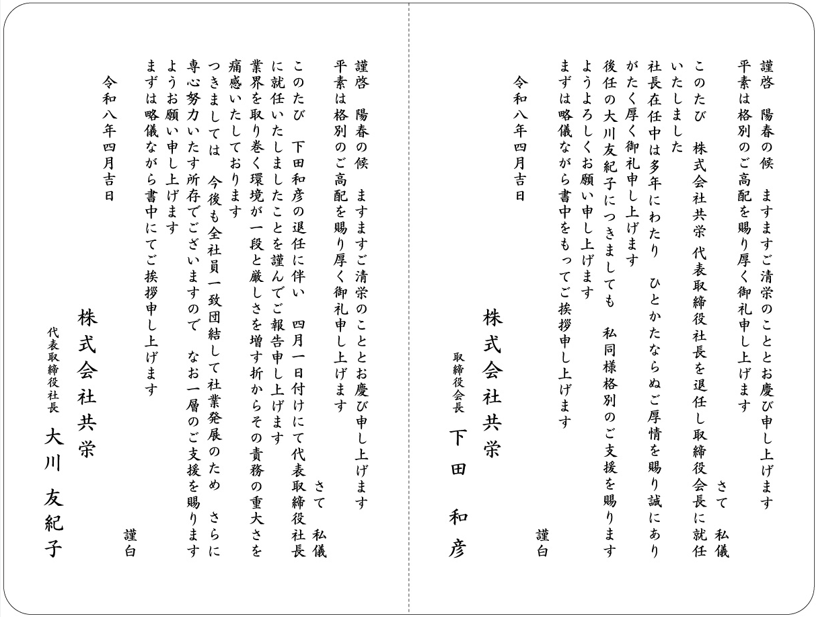 謹啓　陽春の候　ますますご清栄のこととお慶び申し上げます
平素は格別のご高配を賜り厚く御礼申し上げます
さて　私儀
このたび　株式会社共栄 代表取締役社長を退任し取締役会長に就任
いたしました
社長在任中は多年にわたり　ひとかたならぬご厚情を賜り誠にあり
がたく厚く御礼申し上げます
後任の大川友紀子につきましても　私同様格別のご支援を賜ります
ようよろしくお願い申し上げます
まずは略儀ながら書中をもってご挨拶申し上げます
謹白
令和八年四月吉日
株式会社共栄
取締役会長　下田　和彦
謹啓　陽春の候　ますますご清栄のこととお慶び申し上げます
平素は格別のご高配を賜り厚く御礼申し上げます
さて　私儀
このたび　下田和彦の退任に伴い　四月一日付けにて代表取締役社長
に就任いたしましたことを謹んでご報告申し上げます
業界を取り巻く環境が一段と厳しさを増す折からその責務の重大さを
痛感いたしております
つきましては　今後も全社員一致団結して社業発展のため　さらに
専心努力いたす所存でございますので　なお一層のご支援を賜ります
ようお願い申し上げます
まずは略儀ながら書中にてご挨拶申し上げます
謹白
令和八年四月吉日
株式会社共栄
代表取締役社長　大川　友紀子